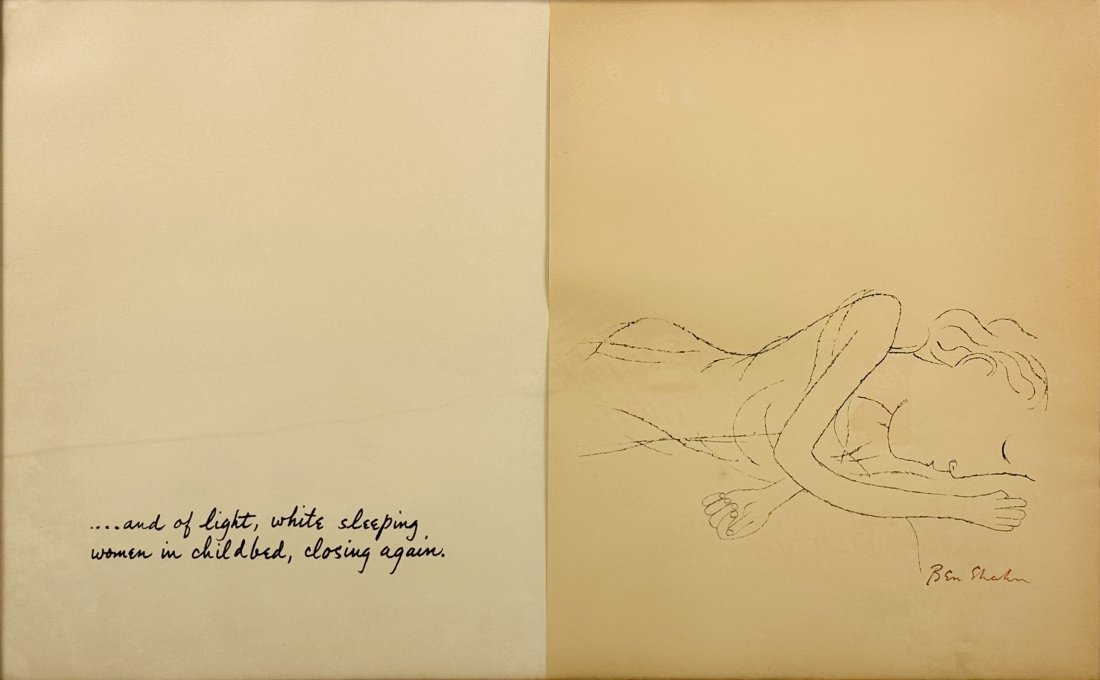 ....and of light, white sleeping
women in childbed, closing again.
Ben Shahn